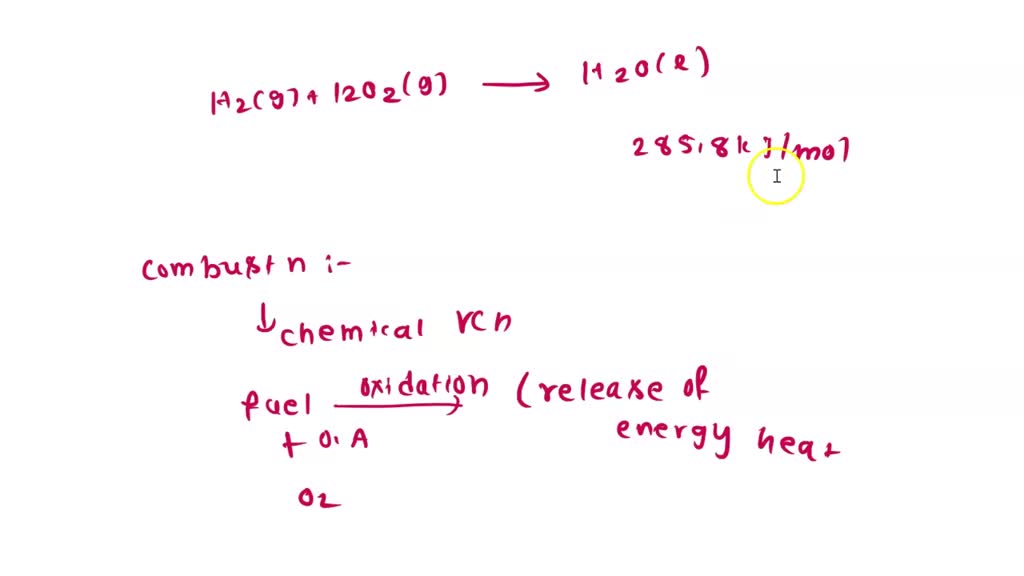 H2(g) + 12O2(g) → H2O(l)
285.8kJ/mol
combustn :-
↓ chemical rcn
fuel oxidation → (release of
+ O.A energy heat
O2